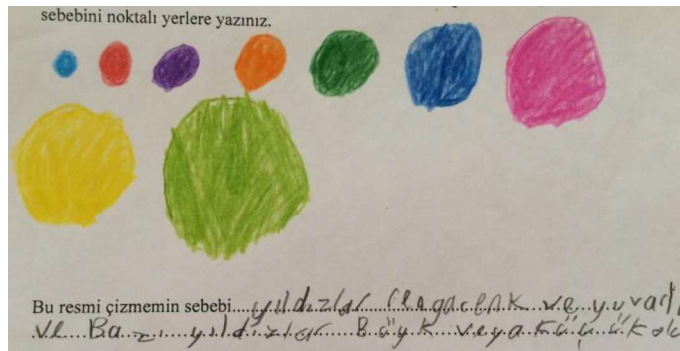 sebebini noktalı yerlere yazınız.
Bu resmi çizmemin sebebi....yıldızlar rengarenk ve yuvarl
ve Bazı yıldızlar Böyk veya küçük olu